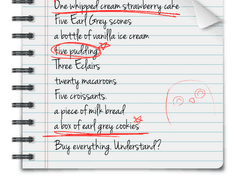 One whipped cream strawberry cake
Five Earl Grey scones
a bottle of vanilla ice cream
five pudding
Three Eclairs
twenty macaroons
Five croissants.
a piece of milk bread
a box of earl grey cookies
Buy everything. Understand?